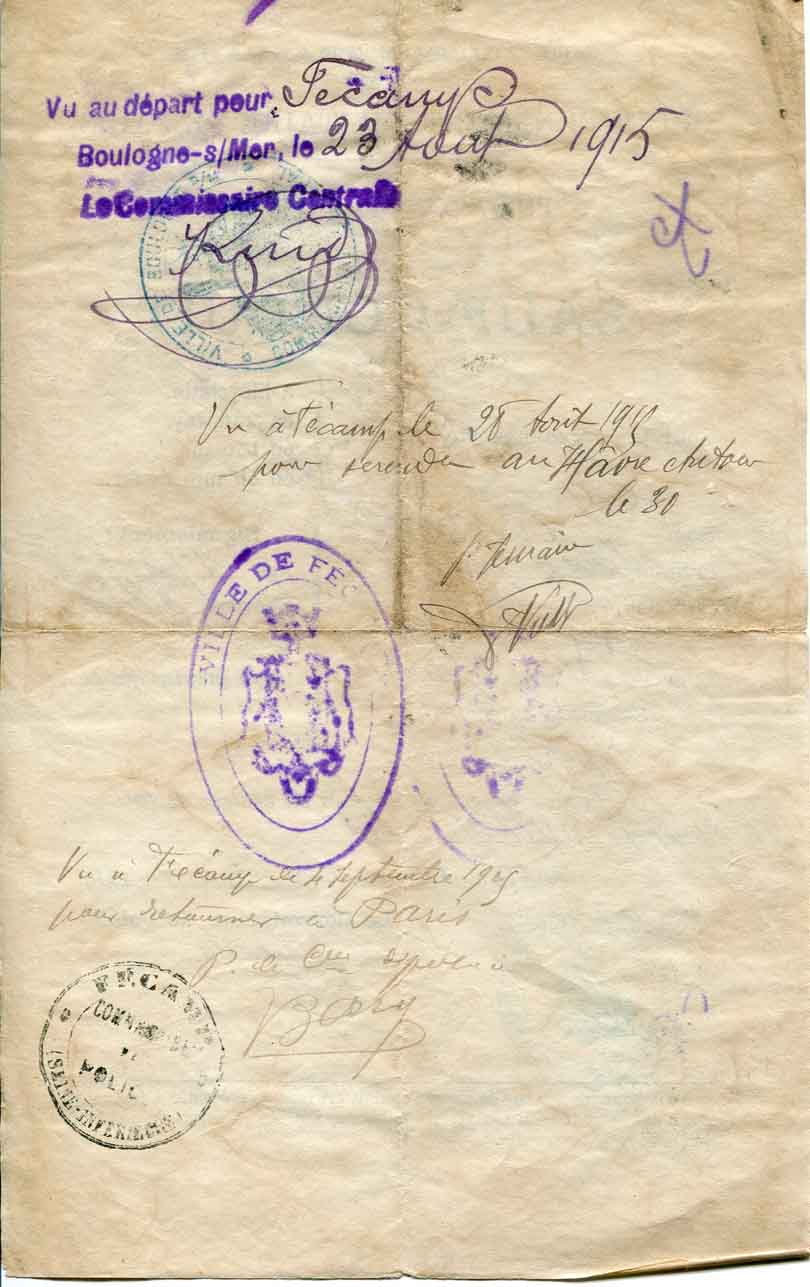 Vu au départ pour Fécamp
Boulogne-s/Mer, le 23 Aout 1915
Le Commissaire Central
VILLE DE BOULOGNE S/M
Vu à Fécamp le 28 Août 1915
pour se rendre au Hâvre & retour
le 30
VILLE DE FÉC
Vu à Fécamp le 4 Septembre 1915
pour retourner à Paris
P. le
FECAMP
COMMISSARIAT
DE
POLICE
(SEINE-INFERIEURE)